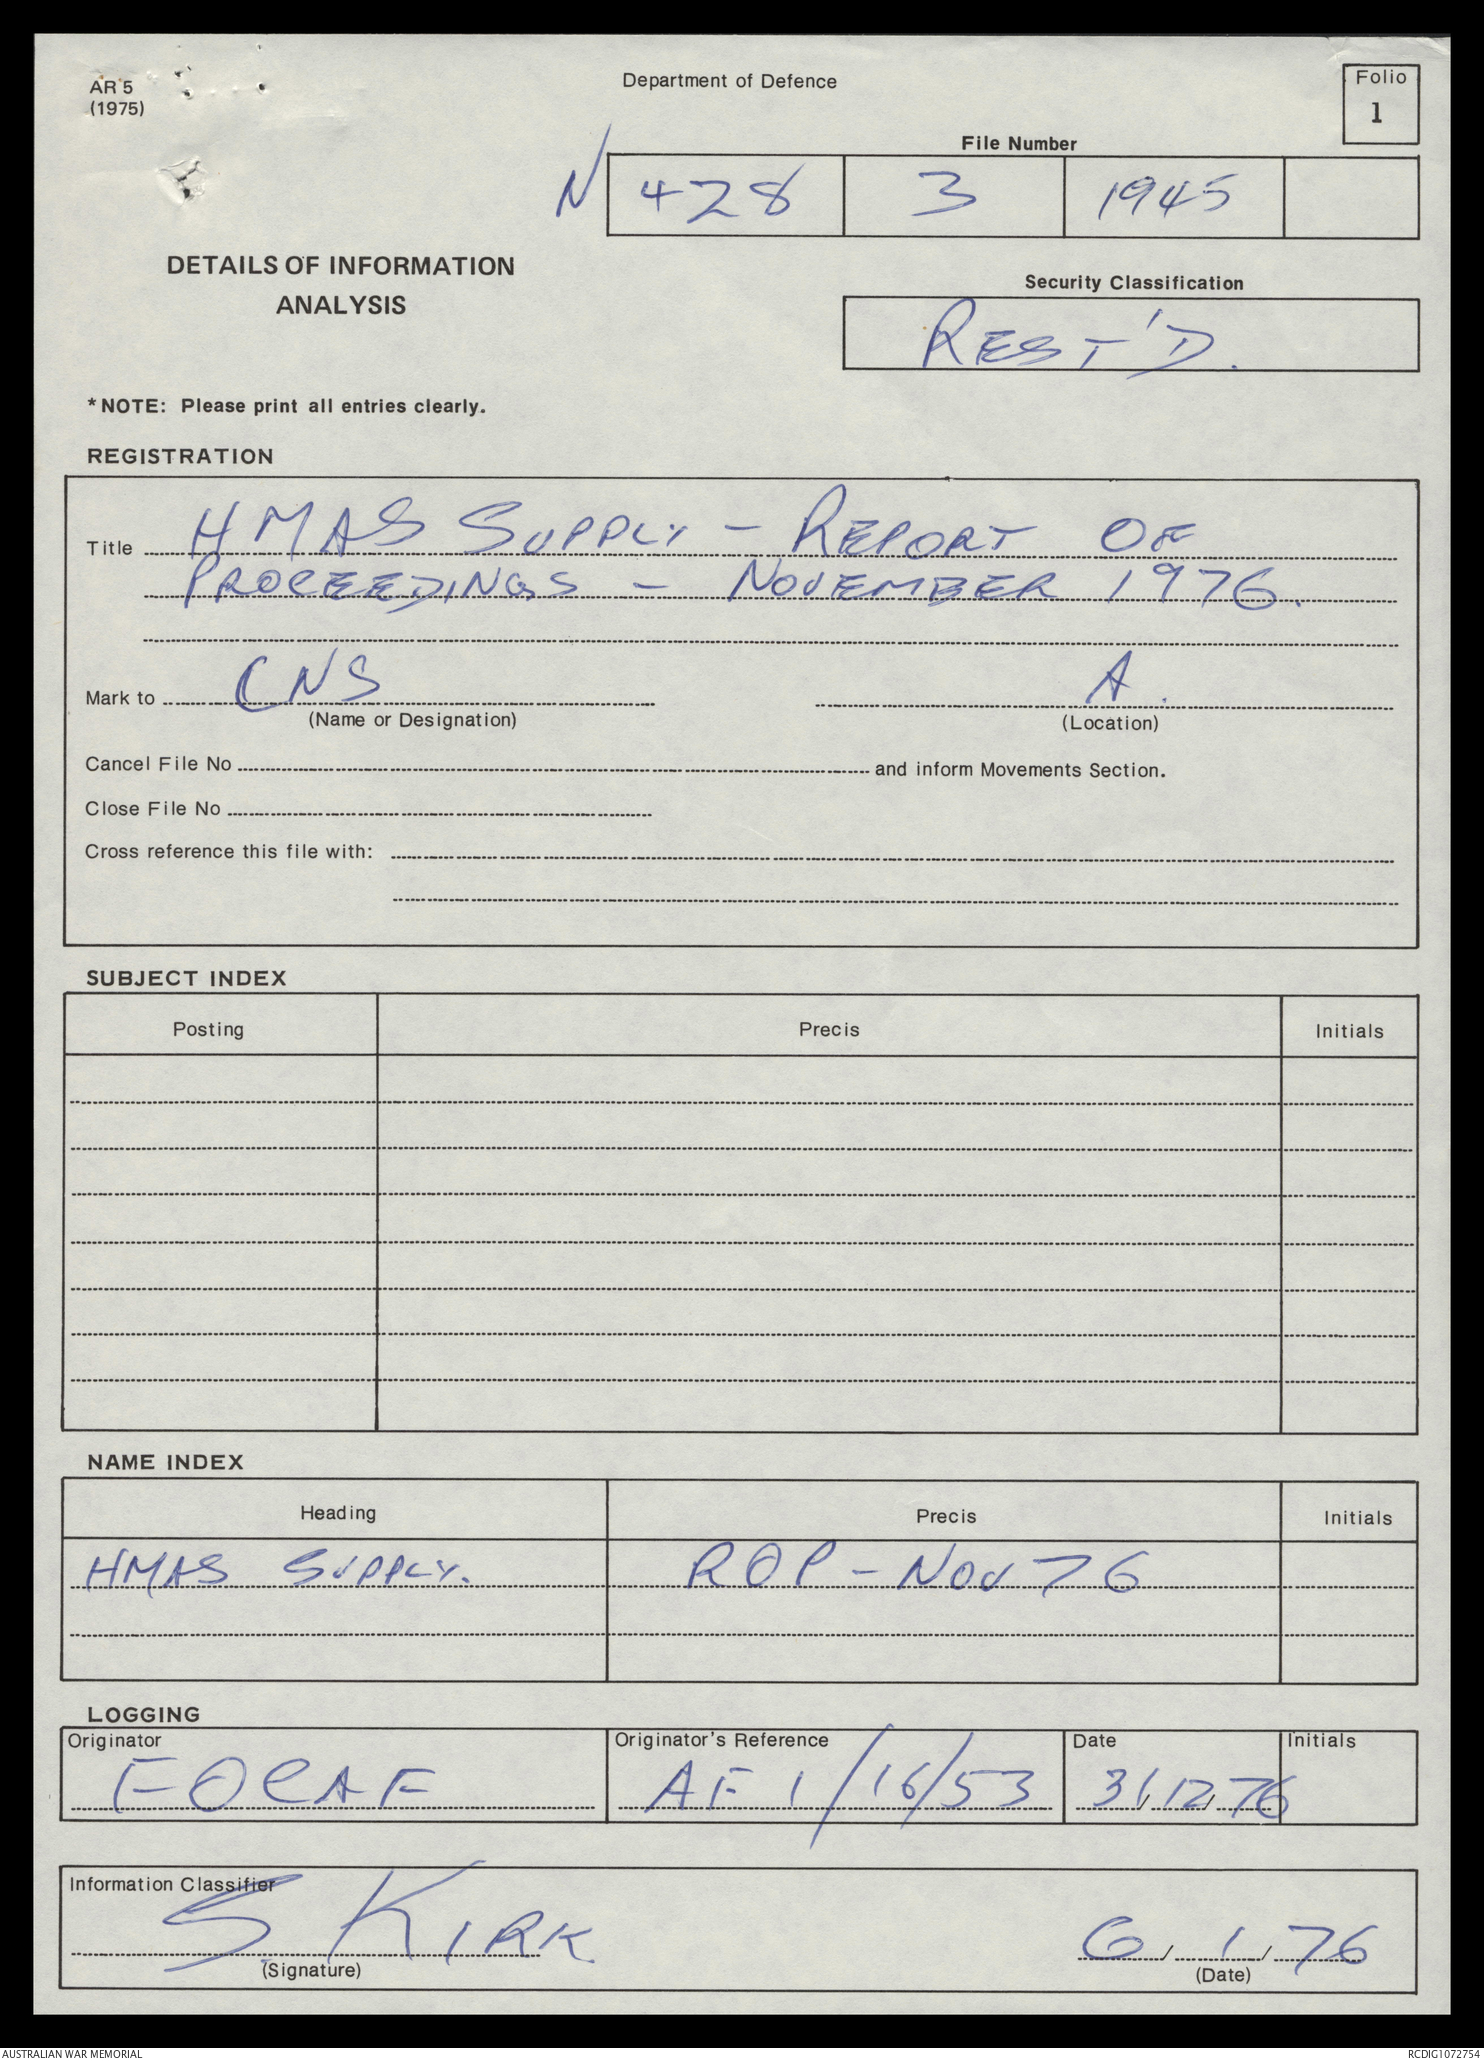 AR 5
(1975)
Department of Defence
Folio
1
File Number
N 428 3 1945
DETAILS OF INFORMATION
ANALYSIS
Security Classification
REST'D.
*NOTE: Please print all entries clearly.
REGISTRATION
Title HMAS SUPPLY - REPORT OF
PROCEEDINGS - NOVEMBER 1976.
Mark to CNS A.
(Name or Designation) (Location)
Cancel File No and inform Movements Section.
Close File No
Cross reference this file with:
SUBJECT INDEX
Posting Precis Initials
NAME INDEX
Heading Precis Initials
HMAS SUPPLY. ROP - NOV 76
LOGGING
Originator Originator's Reference Date Initials
FOCAF AF 1/16/53 31,12,76
Information Classifier
S KIRK 6, 1, 76
(Signature) (Date)
AUSTRALIAN WAR MEMORIAL RCDIG1072754